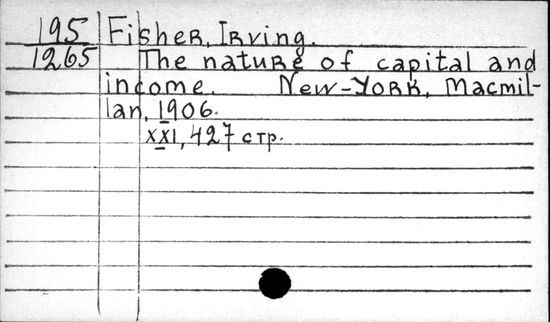 195 Fisher, Irving.
1265 The nature of capital and
income. New-York, Macmil-
lan, 1906.
XXI, 427 стр.